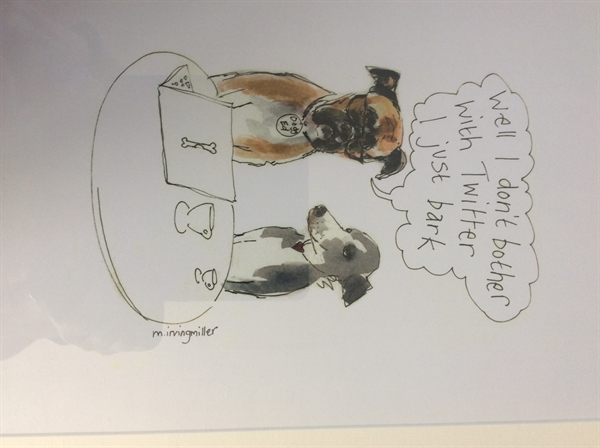 Well I don't bother
with Twitter
I just bark
m.irvingmiller